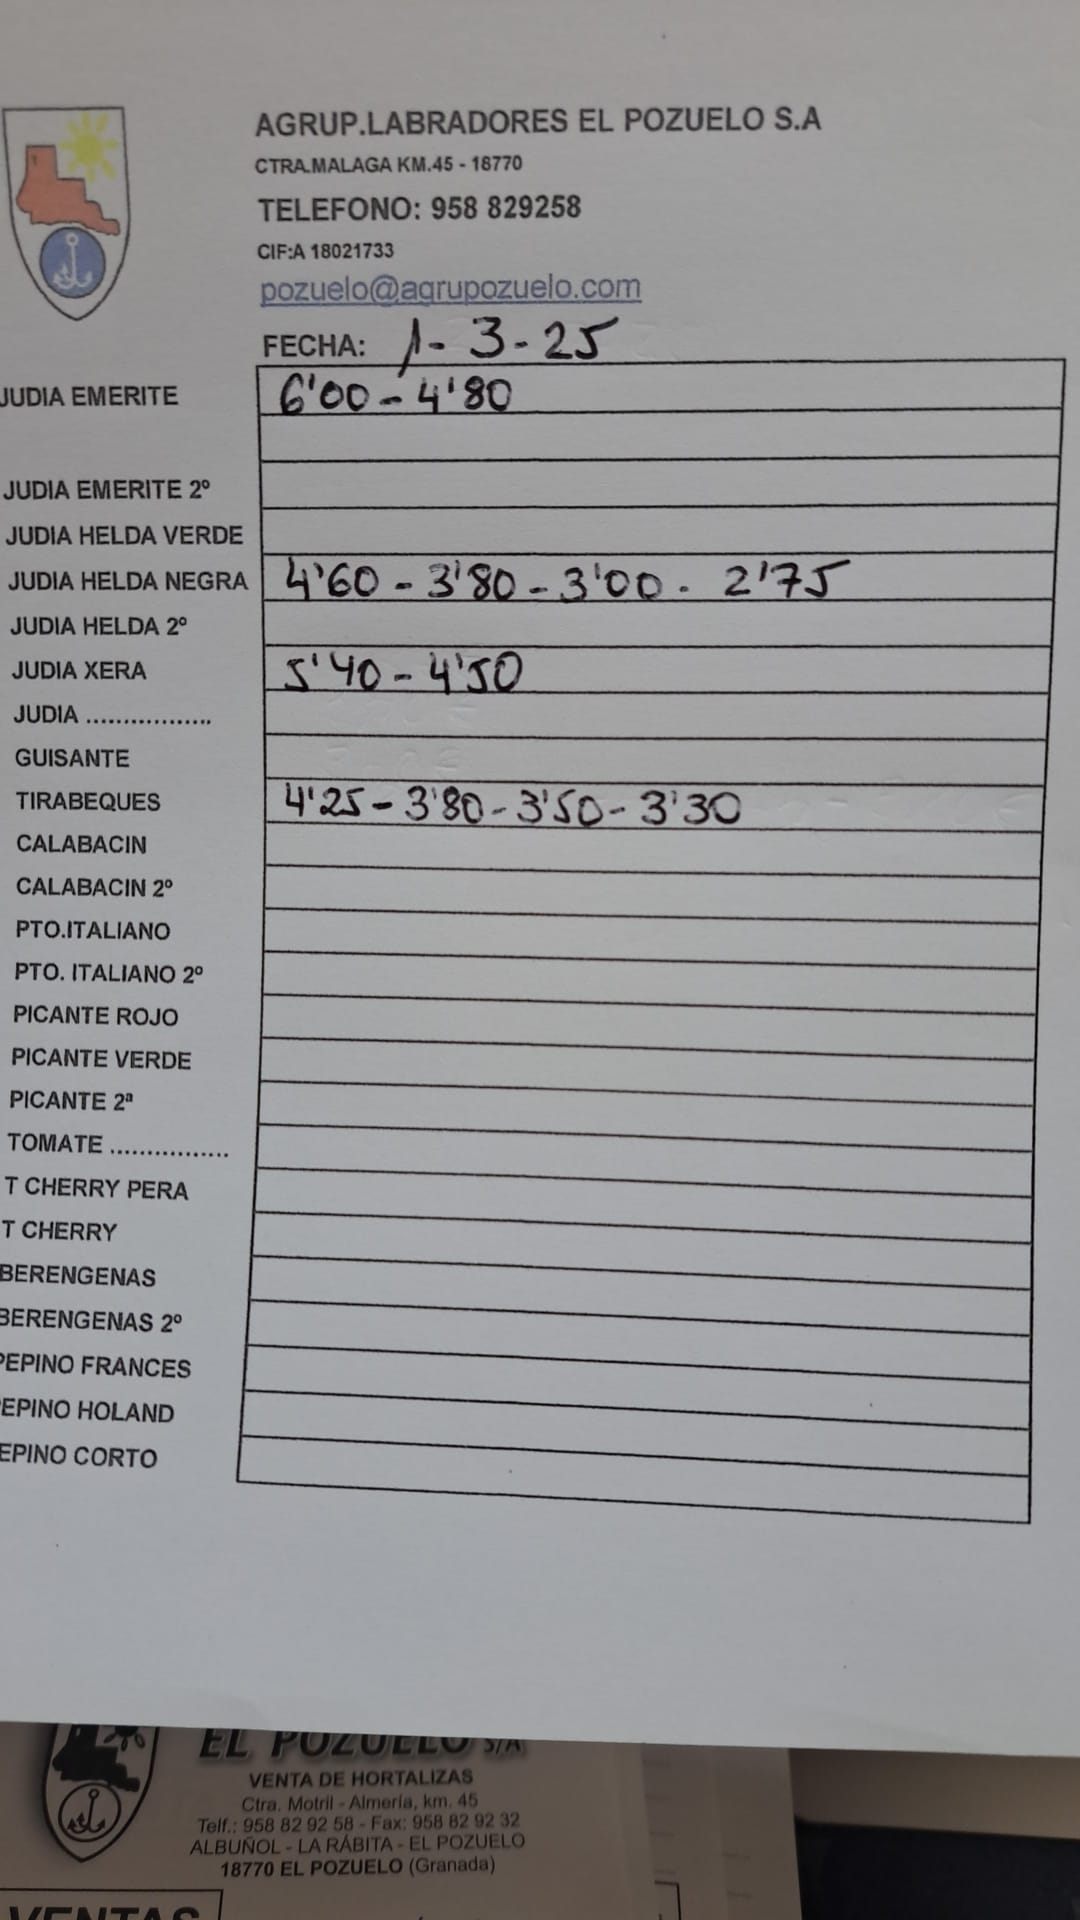 AGRUP.LABRADORES EL POZUELO S.A
CTRA.MALAGA KM.45 - 18770
TELEFONO: 958 829258
CIF:A 18021733
pozuelo@agrupozuelo.com
FECHA: 1-3-25
JUDIA EMERITE 6'00 - 4'80
JUDIA EMERITE 2º
JUDIA HELDA VERDE
JUDIA HELDA NEGRA 4'60 - 3'80 - 3'00 - 2'75
JUDIA HELDA 2º
JUDIA XERA 5'40 - 4'50
JUDIA .................
GUISANTE
TIRABEQUES 4'25 - 3'80 - 3'50 - 3'30
CALABACIN
CALABACIN 2º
PTO.ITALIANO
PTO. ITALIANO 2º
PICANTE ROJO
PICANTE VERDE
PICANTE 2ª
TOMATE ................
T CHERRY PERA
T CHERRY
BERENGENAS
BERENGENAS 2º
PEPINO FRANCES
EPINO HOLAND
EPINO CORTO
EL POZUELO S/A
VENTA DE HORTALIZAS
Ctra. Motril - Almería, km. 45
Telf.: 958 82 92 58 - Fax: 958 82 92 32
ALBUÑOL - LA RÁBITA - EL POZUELO
18770 EL POZUELO (Granada)
VENTAS